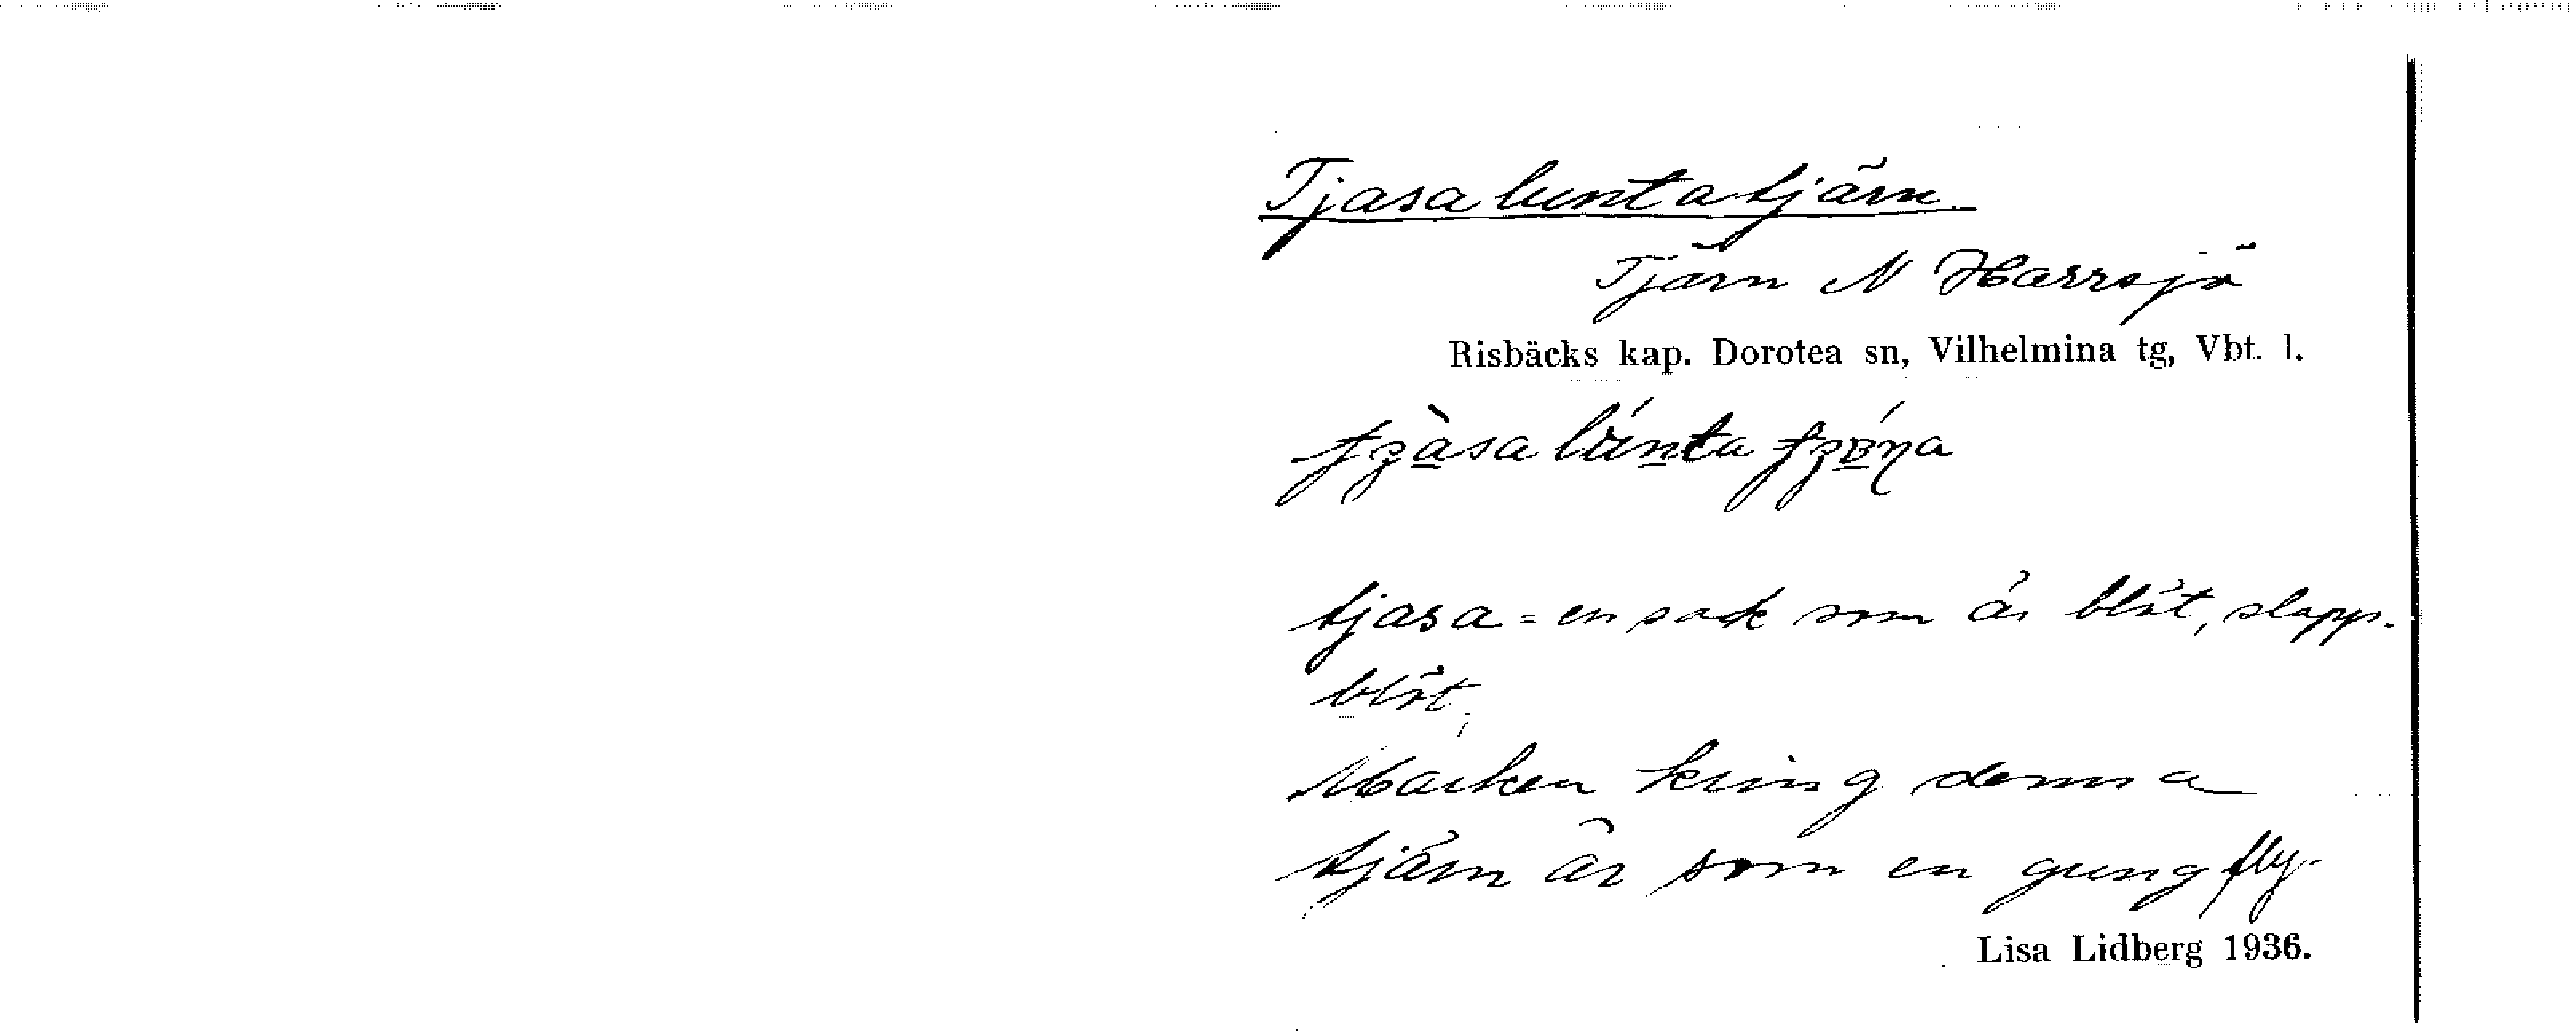 Tjasaluntatjärn
Tjärn N Harrsjö
Risbäcks kap. Dorotea sn, Vilhelmina tg, Vbt. l.
tjasa = en sak som är blöt, slapp.
blöt,
Marken kring denna
tjärn är som en gungfly.
Lisa Lidberg 1936.